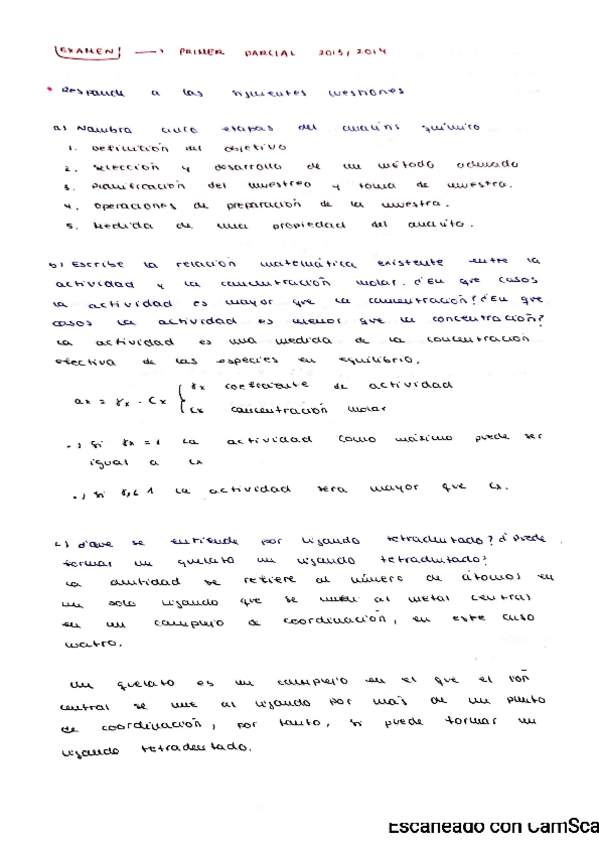 EXAMEN —> PRIMER PARCIAL 2013/2014
• Responde a las siguientes cuestiones
a) Nombra cinco etapas del análisis químico
1. Definición del objetivo
2. Selección y desarrollo de un método adecuado
3. Planificación del muestreo y toma de muestra.
4. Operaciones de preparación de la muestra.
5. Medida de una propiedad del analito.
b) Escribe la relación matemática existente entre la
actividad y la concentración molar. ¿En que casos
la actividad es mayor que la concentración? ¿En que
casos la actividad es menor que la concentración?
La actividad es una medida de la concentración
efectiva de las especies en equilibrio.
ax = γx · Cx { γx coeficiente de actividad
Cx concentración molar
·) Si γx = 1 la actividad como máximo puede ser
igual a Cx
·) Si γx < 1 la actividad sera mayor que Cx.
c) ¿Que se entiende por ligando tetradentado? ¿Puede
formar un quelato un ligando tetradentado?
La dentidad se refiere al número de átomos en
un solo ligando que se unen al metal central
en un complejo de coordinación, en este caso
cuatro.
Un quelato es un complejo en el que el ión
central se une al ligando por más de un punto
de coordinación, por tanto, si puede formar un
ligando tetradentado.
Escaneado con CamSca